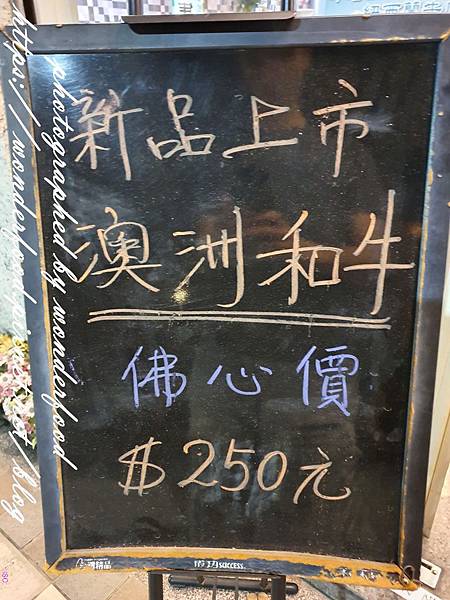 新品上市
澳洲和牛
佛心價
$250元
success.
photographed by wonderfood